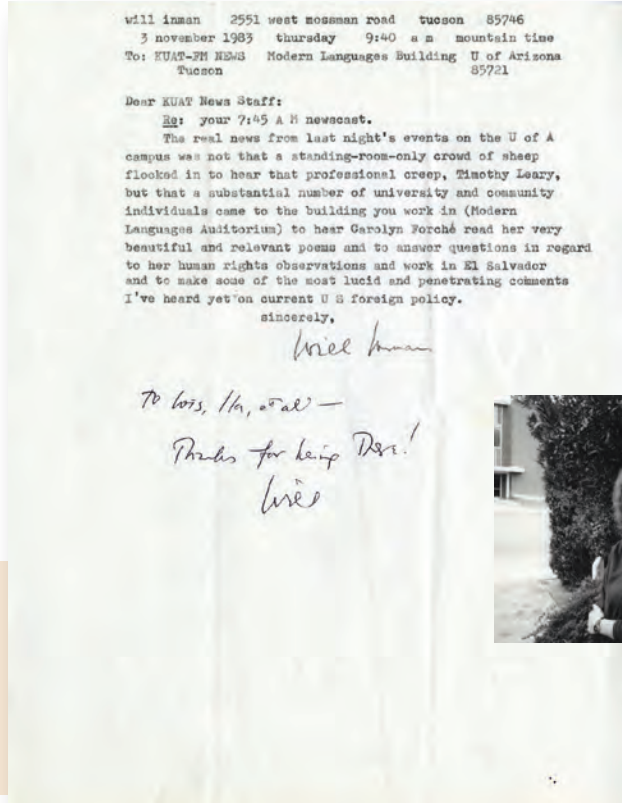 will inman 2551 west mossman road tucson 85746
3 november 1983 thursday 9:40 a m mountain time
To: KUAT-FM NEWS Modern Languages Building U of Arizona
Tucson 85721
Dear KUAT News Staff:
Re: your 7:45 A M newscast.
The real news from last night's events on the U of A
campus was not that a standing-room-only crowd of sheep
flocked in to hear that professional creep, Timothy Leary,
but that a substantial number of university and community
individuals came to the building you work in (Modern
Languages Auditorium) to hear Carolyn Forché read her very
beautiful and relevant poems and to answer questions in regard
to her human rights observations and work in El Salvador
and to make some of the most lucid and penetrating comments
I've heard yet on current U S foreign policy.
sincerely,
Will Inman
To Lois, et al —
Thanks for being There!
Will